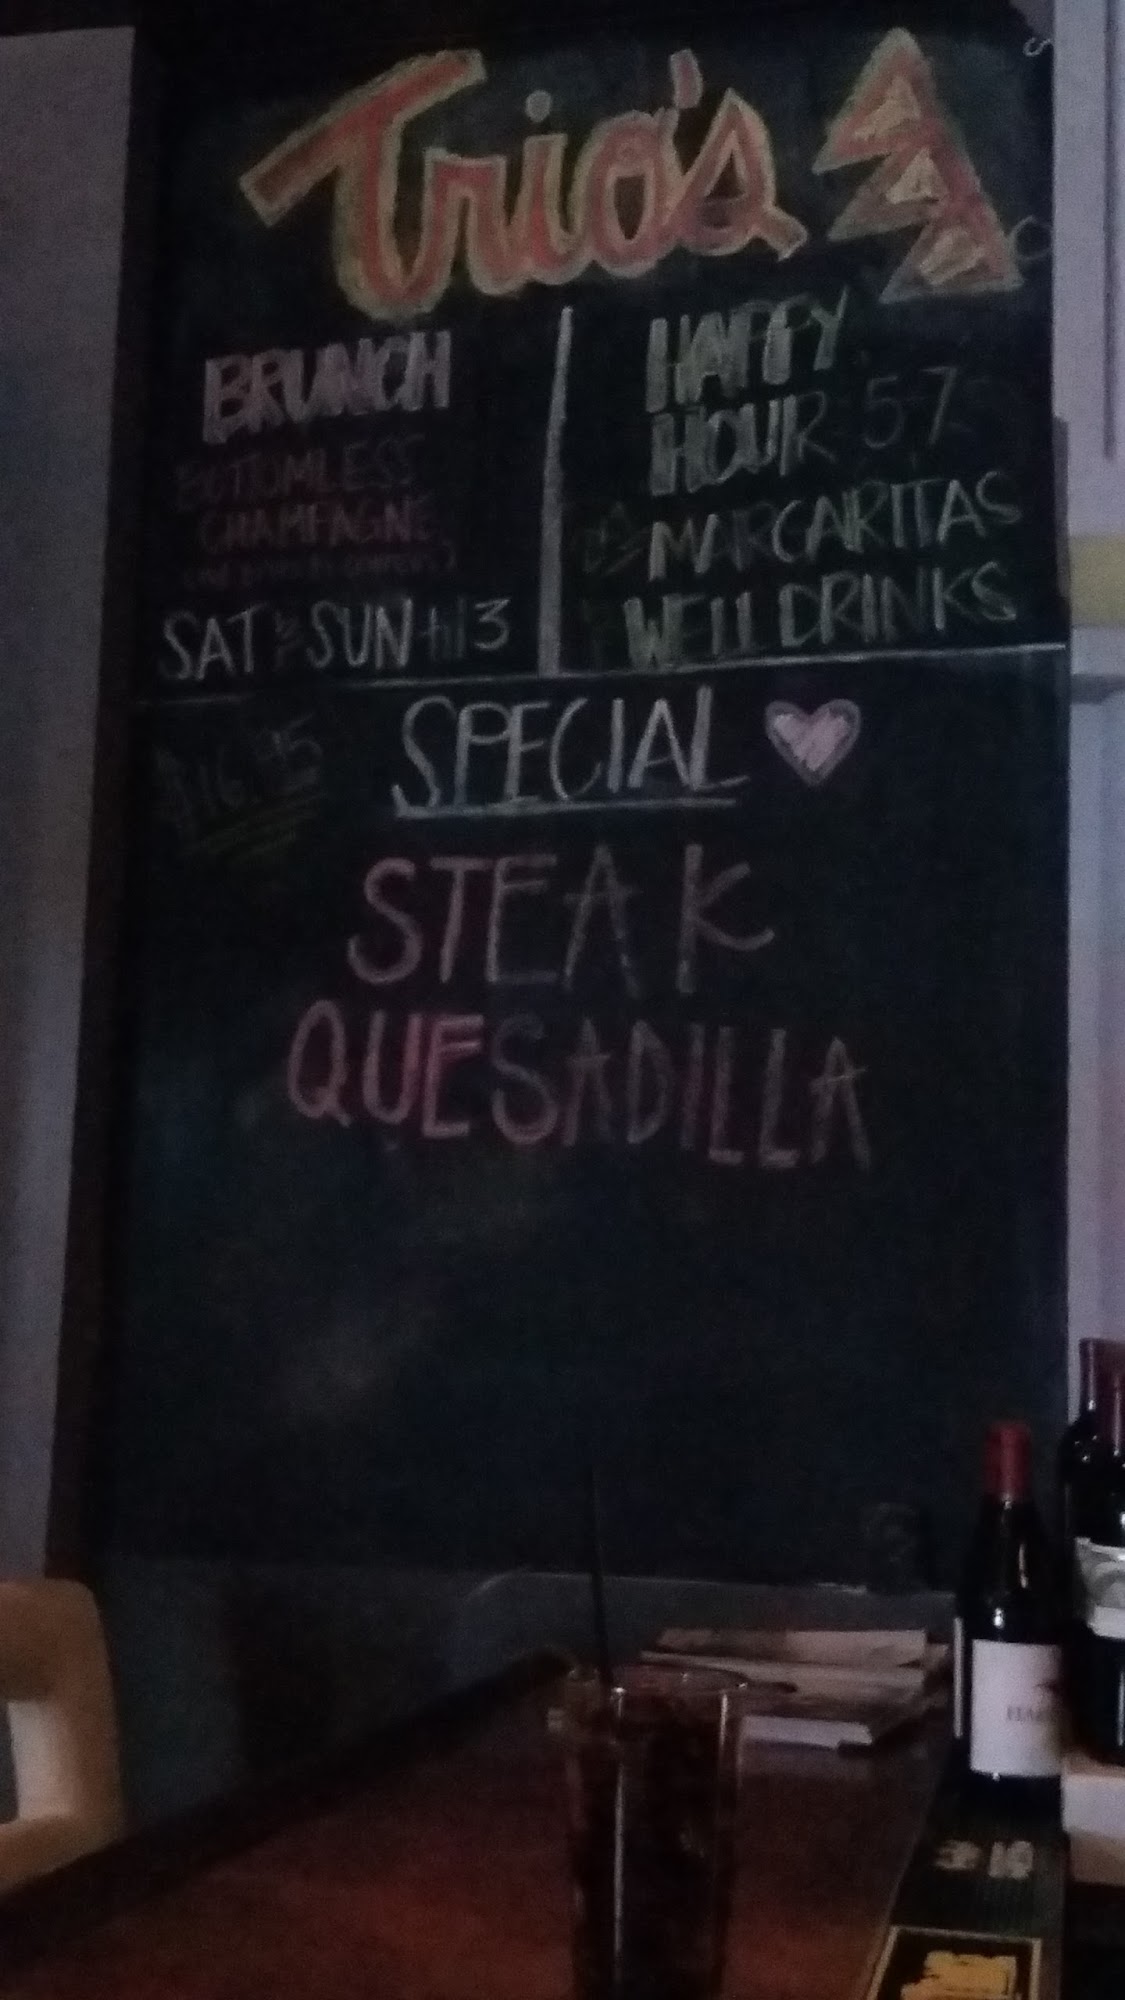 Trio's
BRUNCH
BOTTOMLESS
CHAMPAGNE
SAT SUN til 3
HAPPY
HOUR 5-7
MARGARITAS
WELL DRINKS
$16.95
SPECIAL
STEAK
QUESADILLA